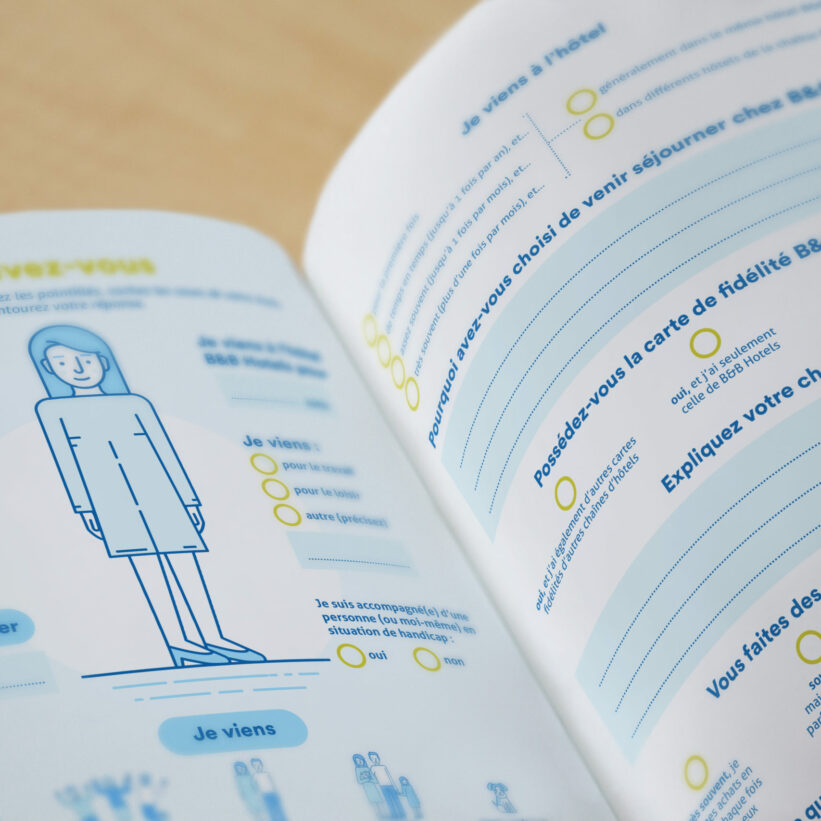 vez-vous
ez les pointillés,
entourez votre réponse
Je viens à l'hôtel
B&B Hotels pour
Je viens :
pour le travail
pour le loisir
autre (précisez)
Je suis accompagné(e) d'une
personne (ou moi-même) en
situation de handicap :
oui
non
er
Je viens
Je viens à l'hôtel
généralement dans le même hôtel
dans différents hôtels de la chaîne
pour la première fois
de temps en temps (jusqu'à 1 fois par an), et...
assez souvent (jusqu'à 1 fois par mois), et...
très souvent (plus d'une fois par mois), et...
Pourquoi avez-vous choisi de venir séjourner chez B&
Possédez-vous la carte de fidélité B&
oui, et j'ai seulement
celle de B&B Hotels
oui, et j'ai également d'autres cartes
fidélités d'autres chaînes d'hôtels
Expliquez votre ch
Vous faites des
so
mai
par
très souvent, je
es achats en
haque fois
eux